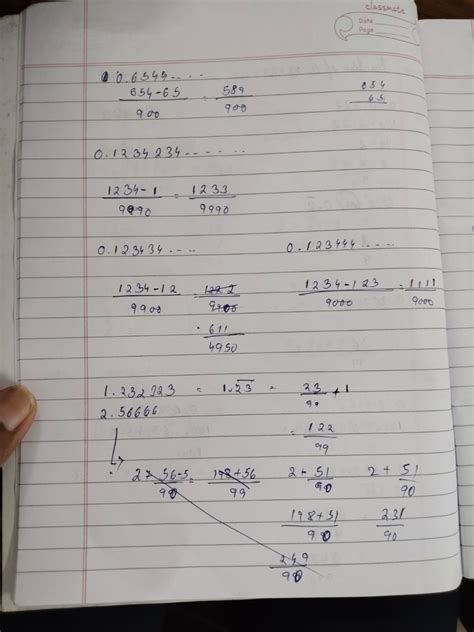 classmate
Date
Page
0.6544....
654-65/900 = 589/900
654
65
0.1234234......
1234-1/9990 = 1233/9990
0.123434....
0.123444....
1234-12/9900 = 1222/9900
1234-123/9000 = 1111/9000
= 611/4950
1.232323 = 1.23 = 23/99 + 1
2.56666
= 122/99
2+ 56-5/90 = 198+56/99
2+ 51/90
2+ 51/90
198+51/90
231/90
249/90